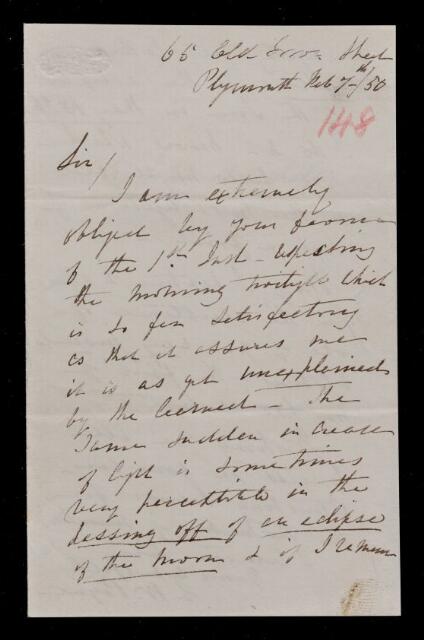 65 Old Town Street
Plymouth Feb 7th/50
148
Sir/
I am extremely
obliged by your favour
of the 1st Inst - respecting
the morning twilight which
is so far satisfactory
as that it assures me
it is as yet unexplained
by the learned - The
same sudden increase
of light is sometimes
very perceptible in the
passing off of an eclipse
of the moon & if I remem